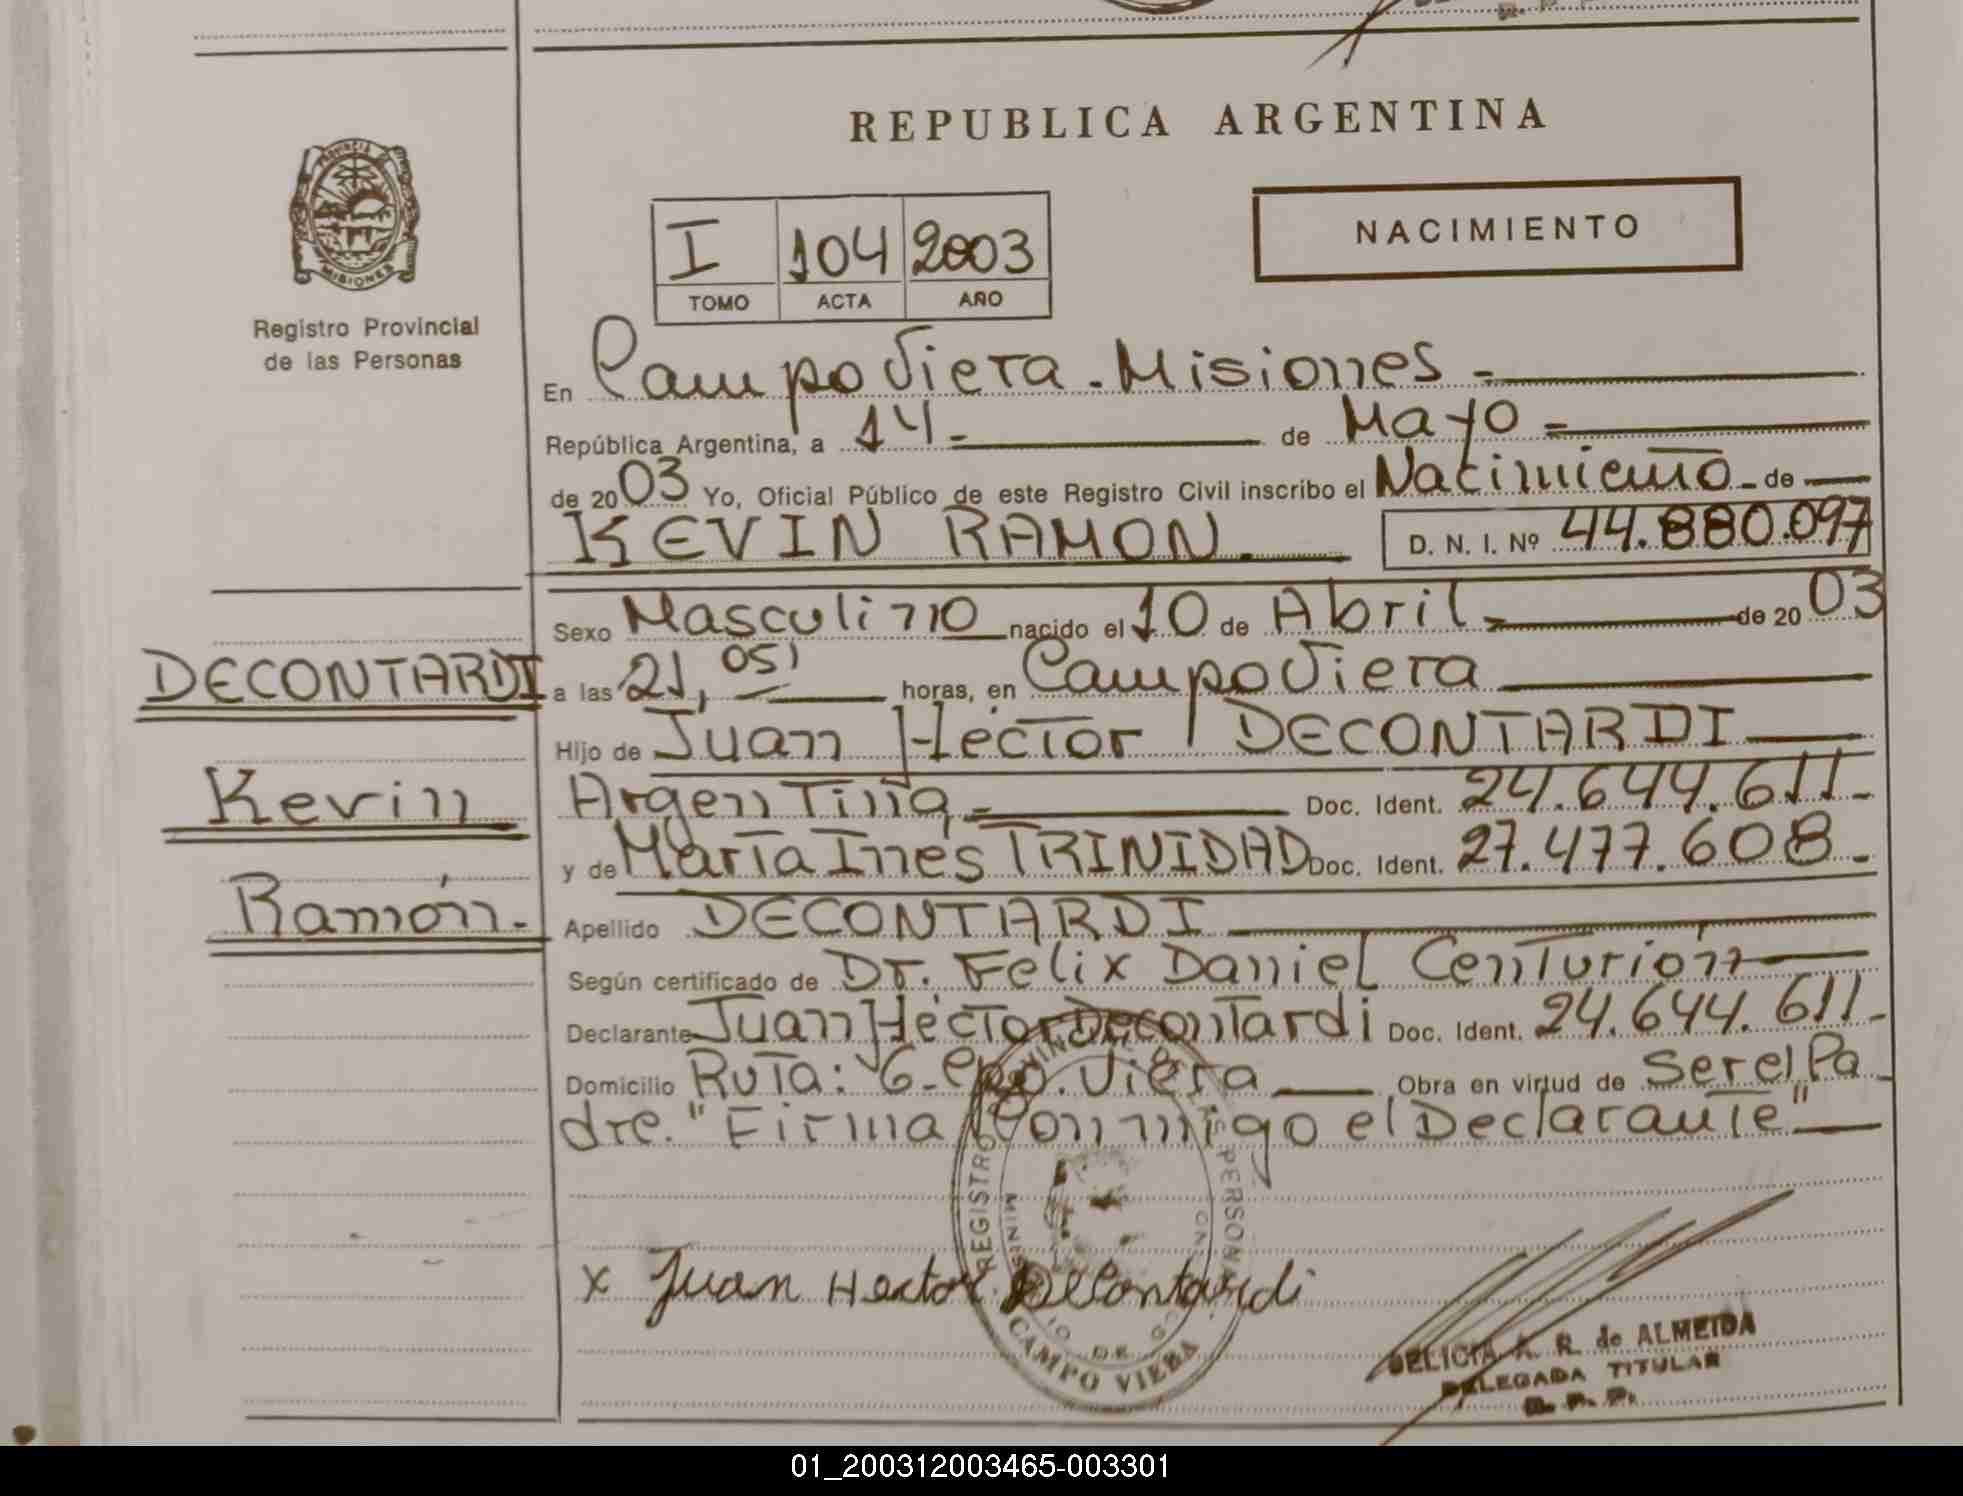 REPUBLICA ARGENTINA
PROVINCIA DE
MISIONES
Registro Provincial
de las Personas
I 104 2003
TOMO ACTA AÑO
NACIMIENTO
En Campo Viera - Misiones -
República Argentina, a 14 - de Mayo -
de 2003 Yo, Oficial Público de este Registro Civil inscribo el Nacimiento - de
KEVIN RAMON. D. N. I. Nº 44.880.097
Sexo Masculino nacido el 10 de Abril - de 2003
DECONTARDI
a las 21, 05' horas, en Campo Viera
Hijo de Juan Héctor DECONTARDI
Kevin
Argentina - Doc. Ident. 24.644.611-
y de María Inés TRINIDAD Doc. Ident. 27.477.608-
Ramón.-
Apellido DECONTARDI
Según certificado de Dr. Felix Daniel Centurión
Declarante Juan Héctor Decontardi Doc. Ident. 24.644.611-
Domicilio Ruta: 6 - Cpo. Viera Obra en virtud de ser el Pa-
dre. "Firma Conmigo el Declarante"
x Juan Hector Decontardi
REGISTRO PERSONAS
CAMPO VIERA
DELICIA A. R. de ALMEIDA
DELEGADA TITULAR
R. P. P.
01_200312003465-003301